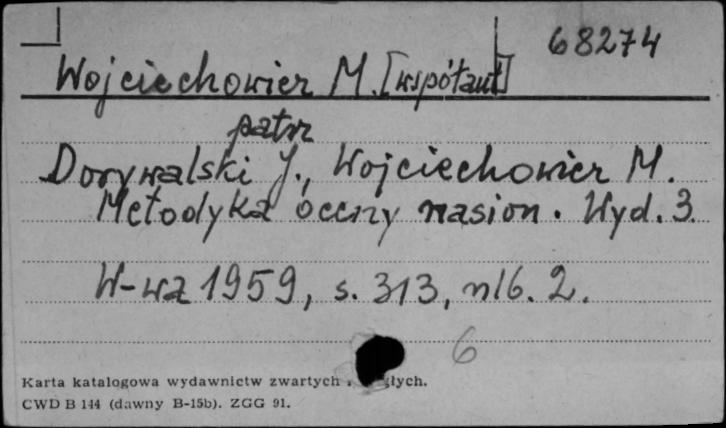 68274
Wojciechowicz M. [współaut]
patrz
Dorywalski J., Wojciechowicz M.
Metodyka oceny nasion. Wyd. 3.
W-wa 1959, s. 313, nlb. 2.
6
Karta katalogowa wydawnictw zwartych
CWD B 144 (dawny B-15b). ZGG 91.